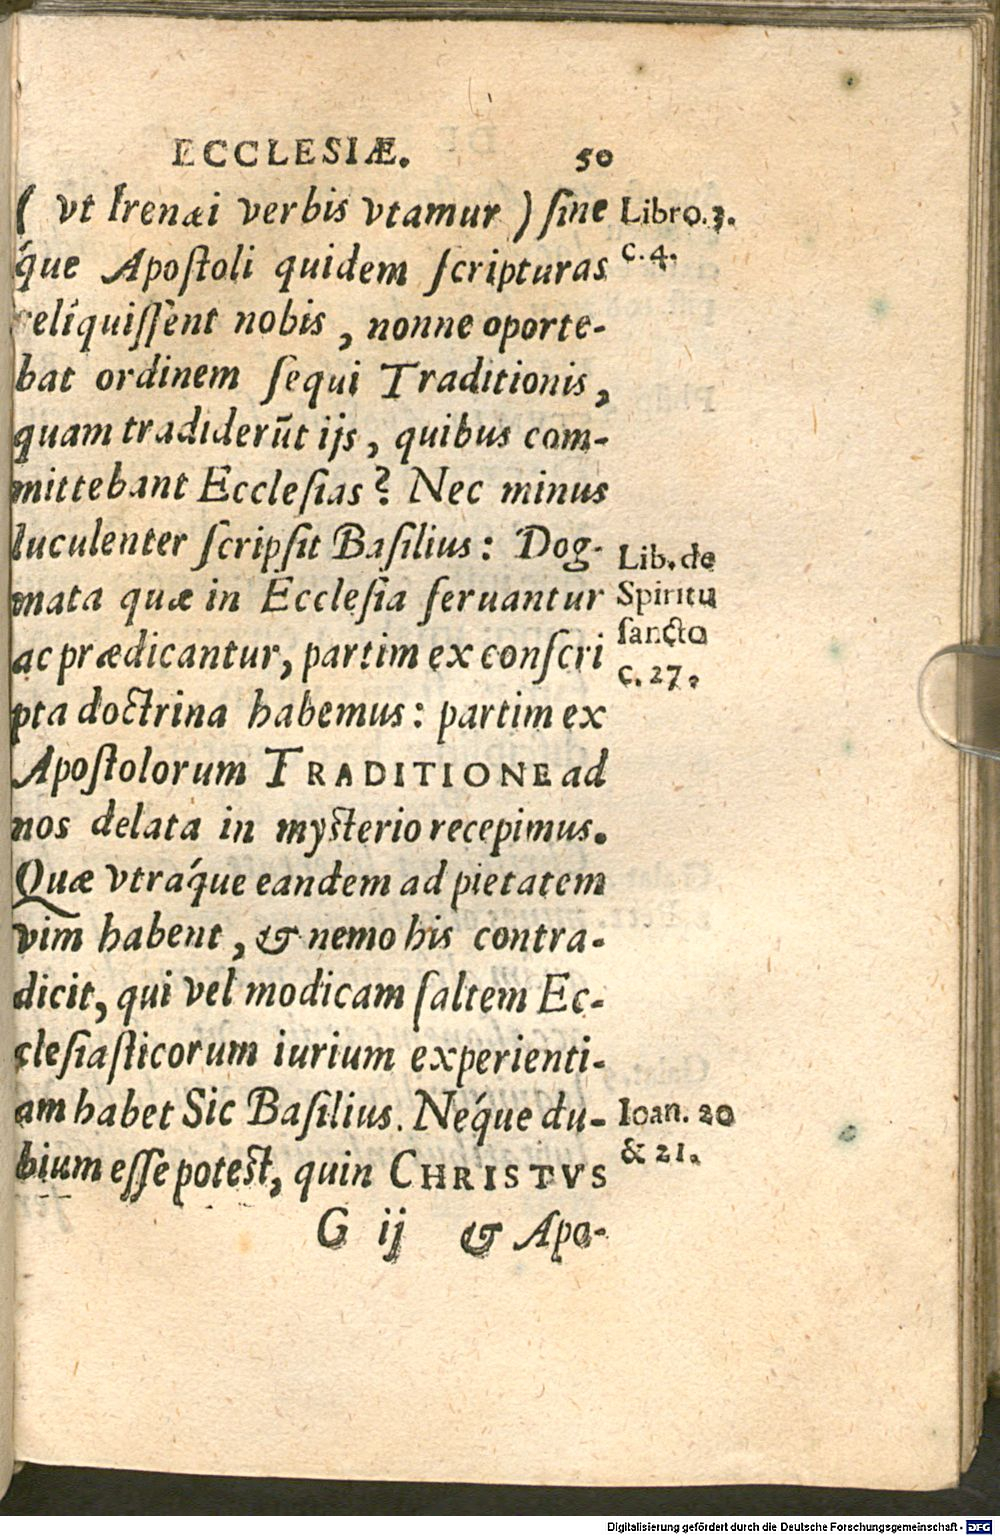 ECCLESIÆ. 50
( vt Irenæi verbis vtamur ) ſine
q́ue Apoſtoli quidem ſcripturas
reliquiſſent nobis, nonne oporte-
bat ordinem ſequi Traditionis,
quam tradiderūt ijs, quibus com-
mittebant Eccleſias? Nec minus
luculenter ſcripſit Baſilius: Dog-
mata quæ in Eccleſia ſeruantur
ac prædicantur, partim ex conſcri
pta doctrina habemus: partim ex
Apoſtolorum TRADITIONE ad
nos delata in myſterio recepimus.
Quæ vtraq́ue eandem ad pietatem
vim habent, & nemo his contra-
dicit, qui vel modicam ſaltem Ec-
cleſiaſticorum iurium experienti-
am habet Sic Baſilius. Neq́ue du-
bium eſſe poteſt, quin CHRISTVS
G ij & Apo-
Libro. 3.
c. 4.
Lib. de
Spiritu
ſancto
c. 27.
Ioan. 20
& 21.
Digitalisierung gefördert durch die Deutsche Forschungsgemeinschaft - DFG